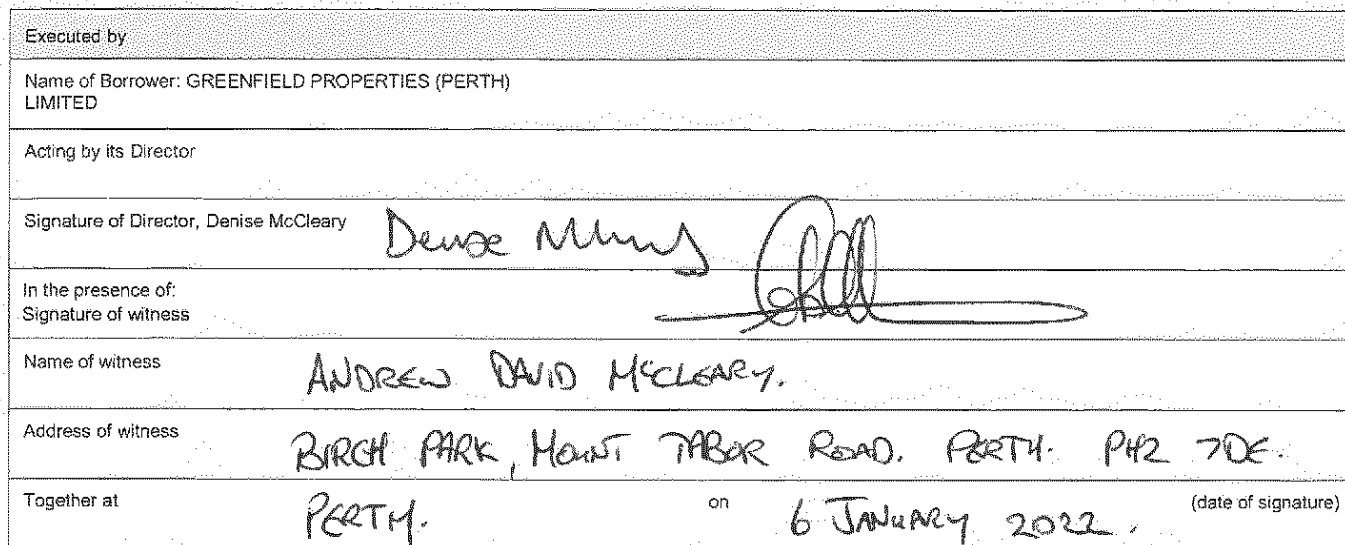 Executed by
Name of Borrower: GREENFIELD PROPERTIES (PERTH)
LIMITED
Acting by its Director
Signature of Director, Denise McCleary Denise
In the presence of:
Signature of witness
Name of witness ANDREW DAVID McCLEARY.
Address of witness BIRCH PARK, MOUNT TABOR ROAD. PERTH. PH2 7DE.
Together at PERTH. on 6 JANUARY 2022. (date of signature)